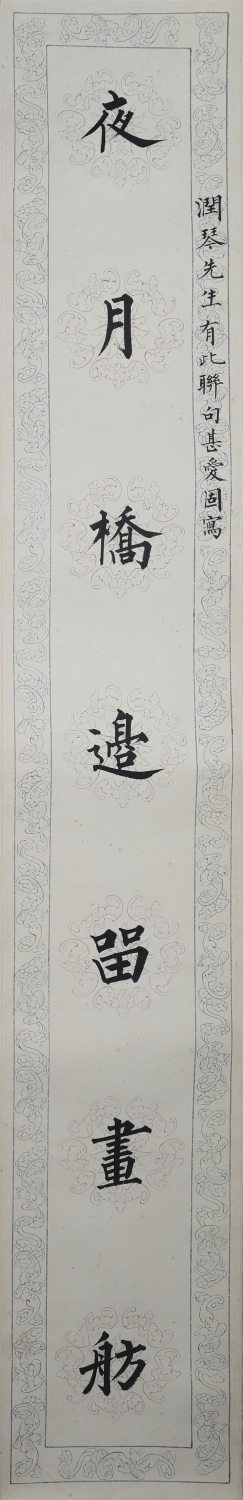 潤琴先生有此聯句甚愛固寫
夜月橋邊畱畫舫